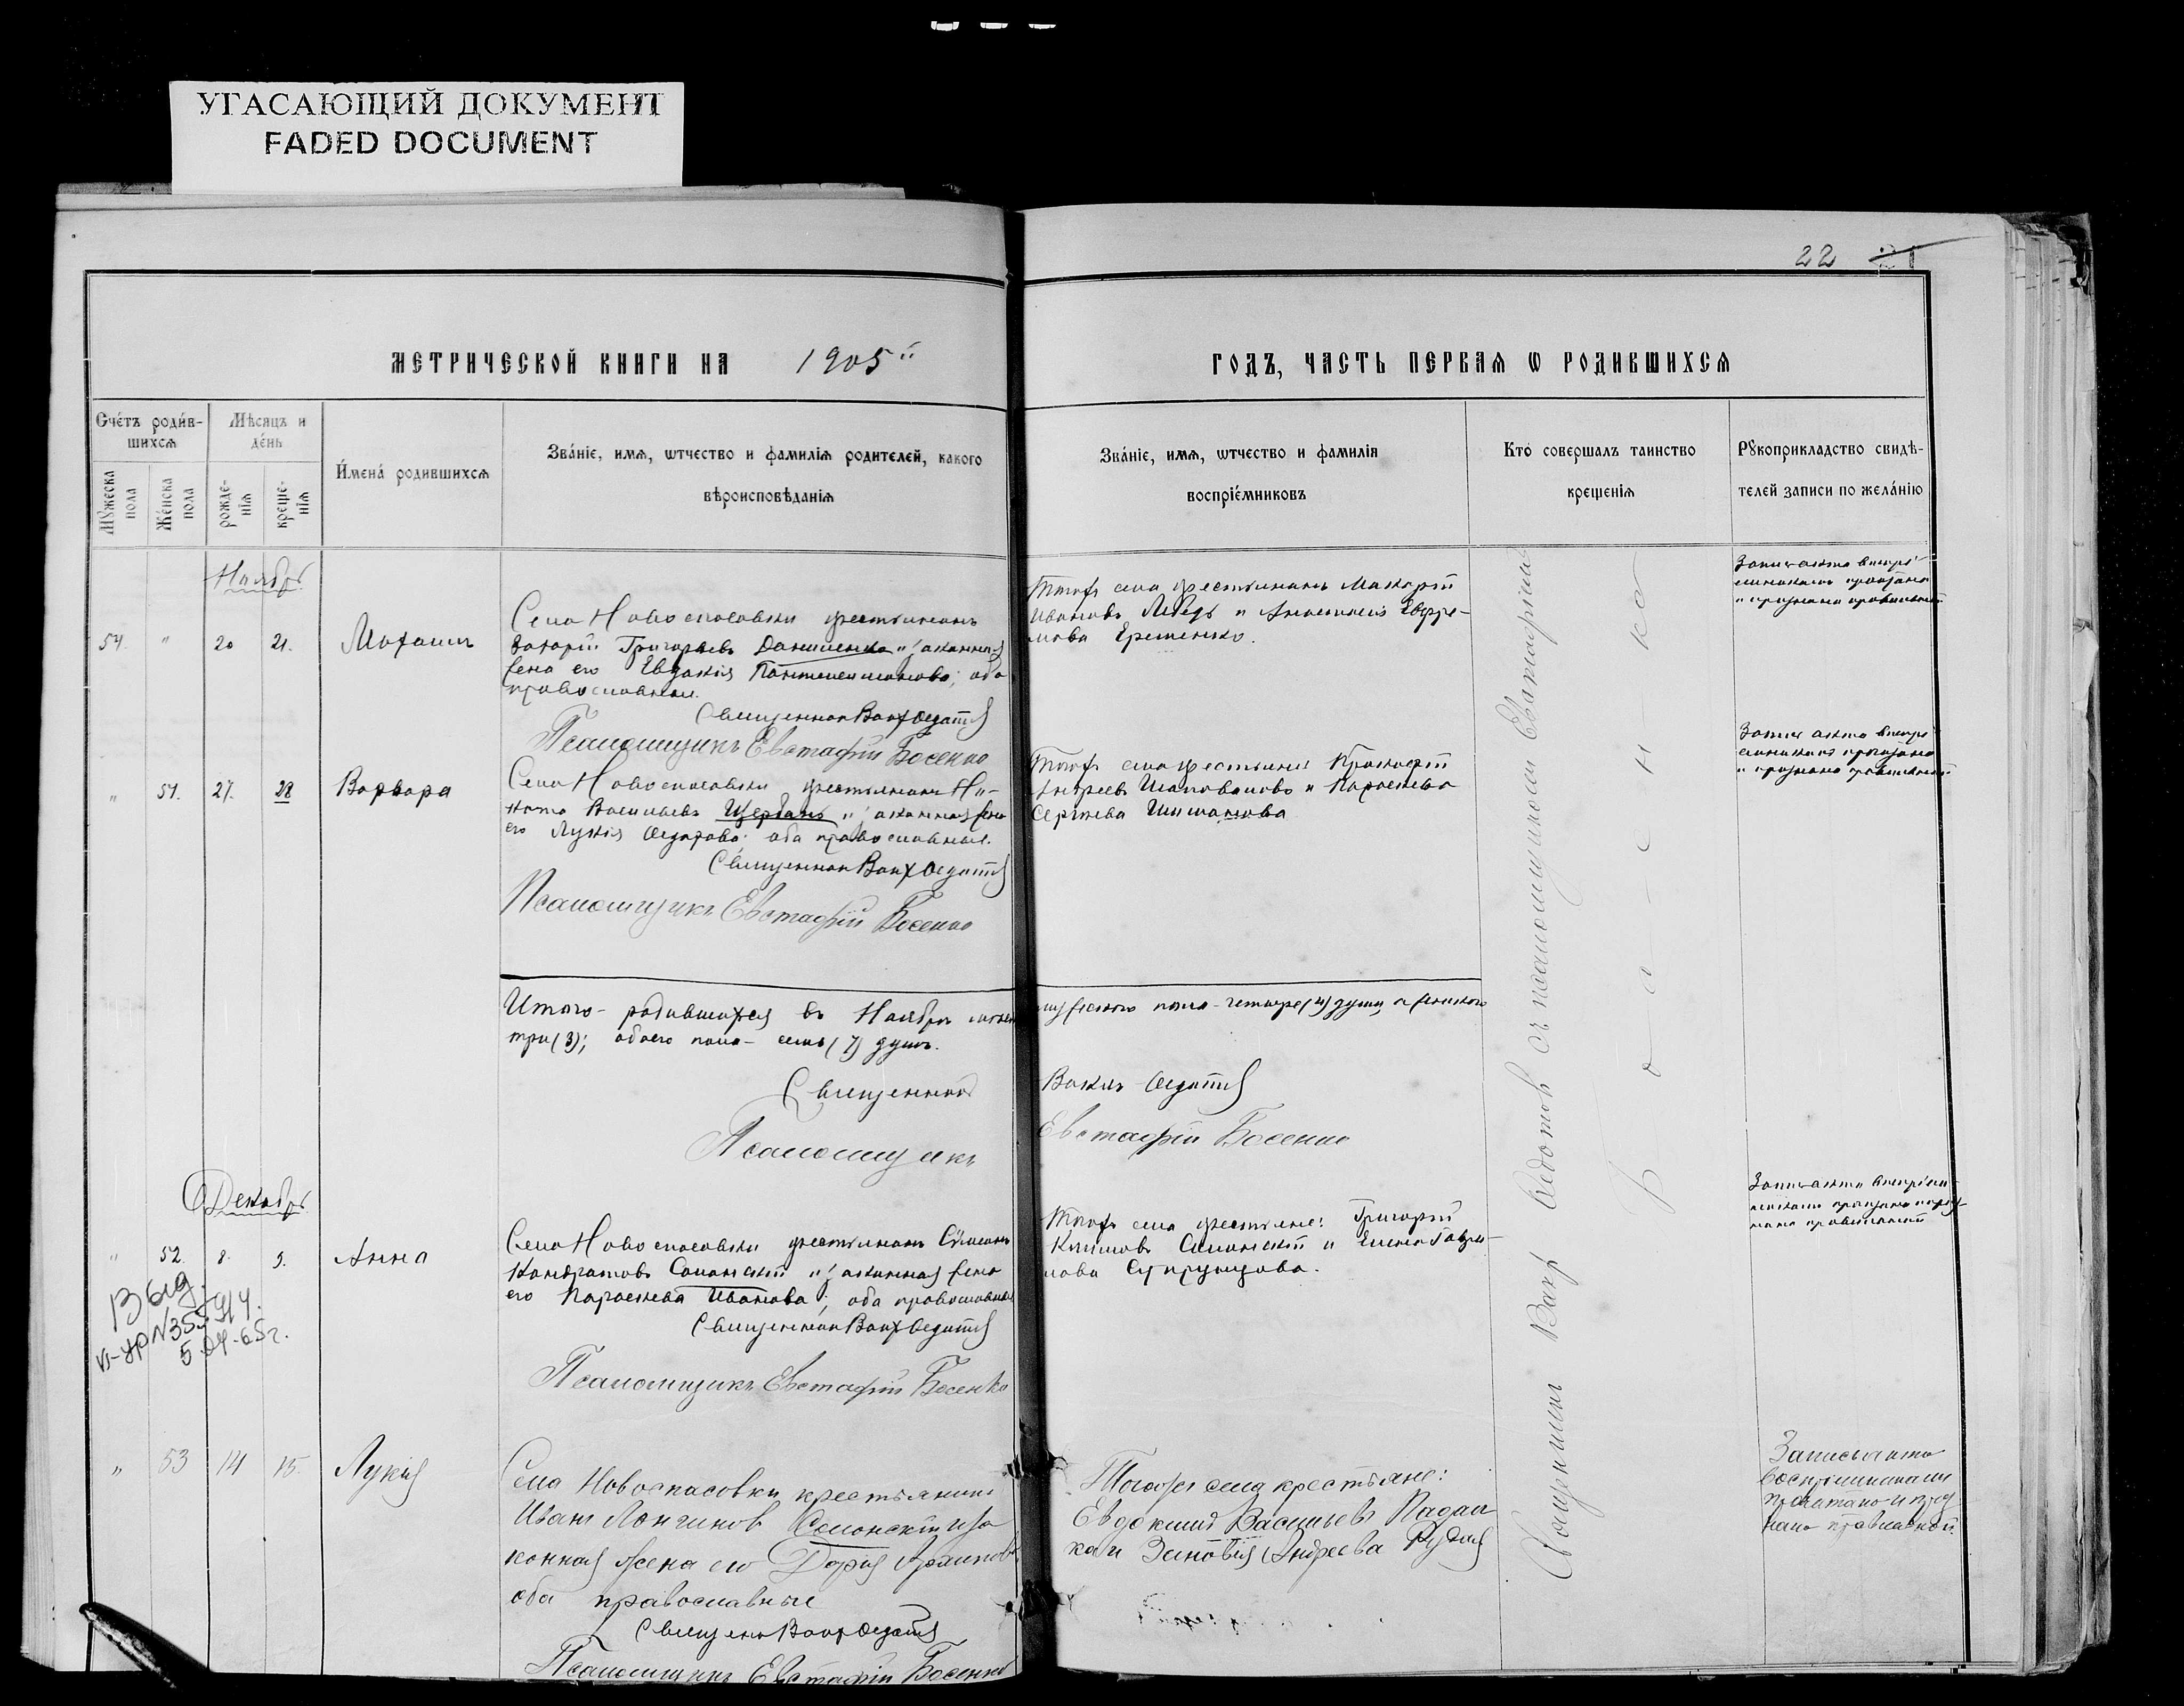 УГАСАЮЩИЙ ДОКУМЕНТ
FADED DOCUMENT
22 21
МЕТРИЧЕСКОЙ КНИГИ НА 1905 й
ГОДЪ, ЧАСТЬ ПЕРВАѦ Ѡ РОДИВШИХСѦ
Счётъ роди́в-
шихсѧ
Мѣсяцъ и
де́нь
Мꙋжеска
пола
Же́нска
пола
рожде-
нїѧ
креще-
нїѧ
И́мена́ родившихсѧ
Зва́нїе, имѧ, ѡтчество и фамилїѧ родителей, какого
вѣроисповѣданїѧ
Зва́нїе, имѧ, ѡтчество и фамилїѧ
воспрїе́мниковъ
Кто́ совершалъ таинство
крещенїѧ
Рꙋкоприкладство свидѣ-
телей записи по жела́нїю
Ноябрь
54. " 20 21.
Села Новоспасовки крестьянинъ
Захарій Григорьевъ Даниленко и законная
жена его Евдокія Пантелеимонова; оба
православные.
Священник Вакх Федотов
Псаломщикъ Евстафій Босенко
Тогоже села крестьяне Макарій
Ивановъ Лебедь и Анастасія Евфре-
мова Еременко.
Запись акта воспрі-
емникамъ прочитана
и признана правильной
" 51. 27. 28 Варвара
Села Новоспасовки крестьянинъ Ни-
кита Васильевъ Щербань и законная жена
его Лукія Федорова; оба православные.
Священник Вакх Федотов
Псаломщикъ Евстафій Босенко
Тогоже села крестьяне Прокофій
Андреевъ Шаповаловъ и Параскева
Сергіева Шишанова
Запись акта воспрі-
емникамъ прочитана
и признана правильной
Итого - родившихся въ Ноябрѣ мѣсяцѣ мужескаго пола - четыре (4) души, а женскаго
три (3); обоего пола - семь (7) душъ.
Священникъ Вакхъ Федотов
Псаломщикъ Евстафій Босенко
Декабрь
" 52. 8. 9. Анна
Села Новоспасовки крестьянинъ Сѵмеонъ
Кондратовъ Саманскій и законная жена
его Параскева Иванова; оба православные
Священник Вакх Федотов
Псаломщикъ Евстафій Босенко
Тогоже села крестьяне: Григорій
Климовъ Саманскій и Елена Гаври-
лова Супрунцова.
Запись акта воспріем-
никами прочитана и приз-
нана правильной
Выд.
5.04-65г.
" 53 14 15. Лукія
Села Новоспасовки крестьянинъ
Иванъ Лонгинов Саманскій и за
конная жена его Дарія Архипова
оба православные
Священ Вакх Федотов
Псаломщикъ Евстафій Босенко
Тогоже села крестьяне:
Евдокимъ Васильевъ Падал
ка и Зиновія Андреева Рудая
Запись акта
воспріемниками
прочитано и приз
нано правильной.
Священникъ Вакх Федотовъ съ псаломщикомъ Евстафіемъ
Босенко